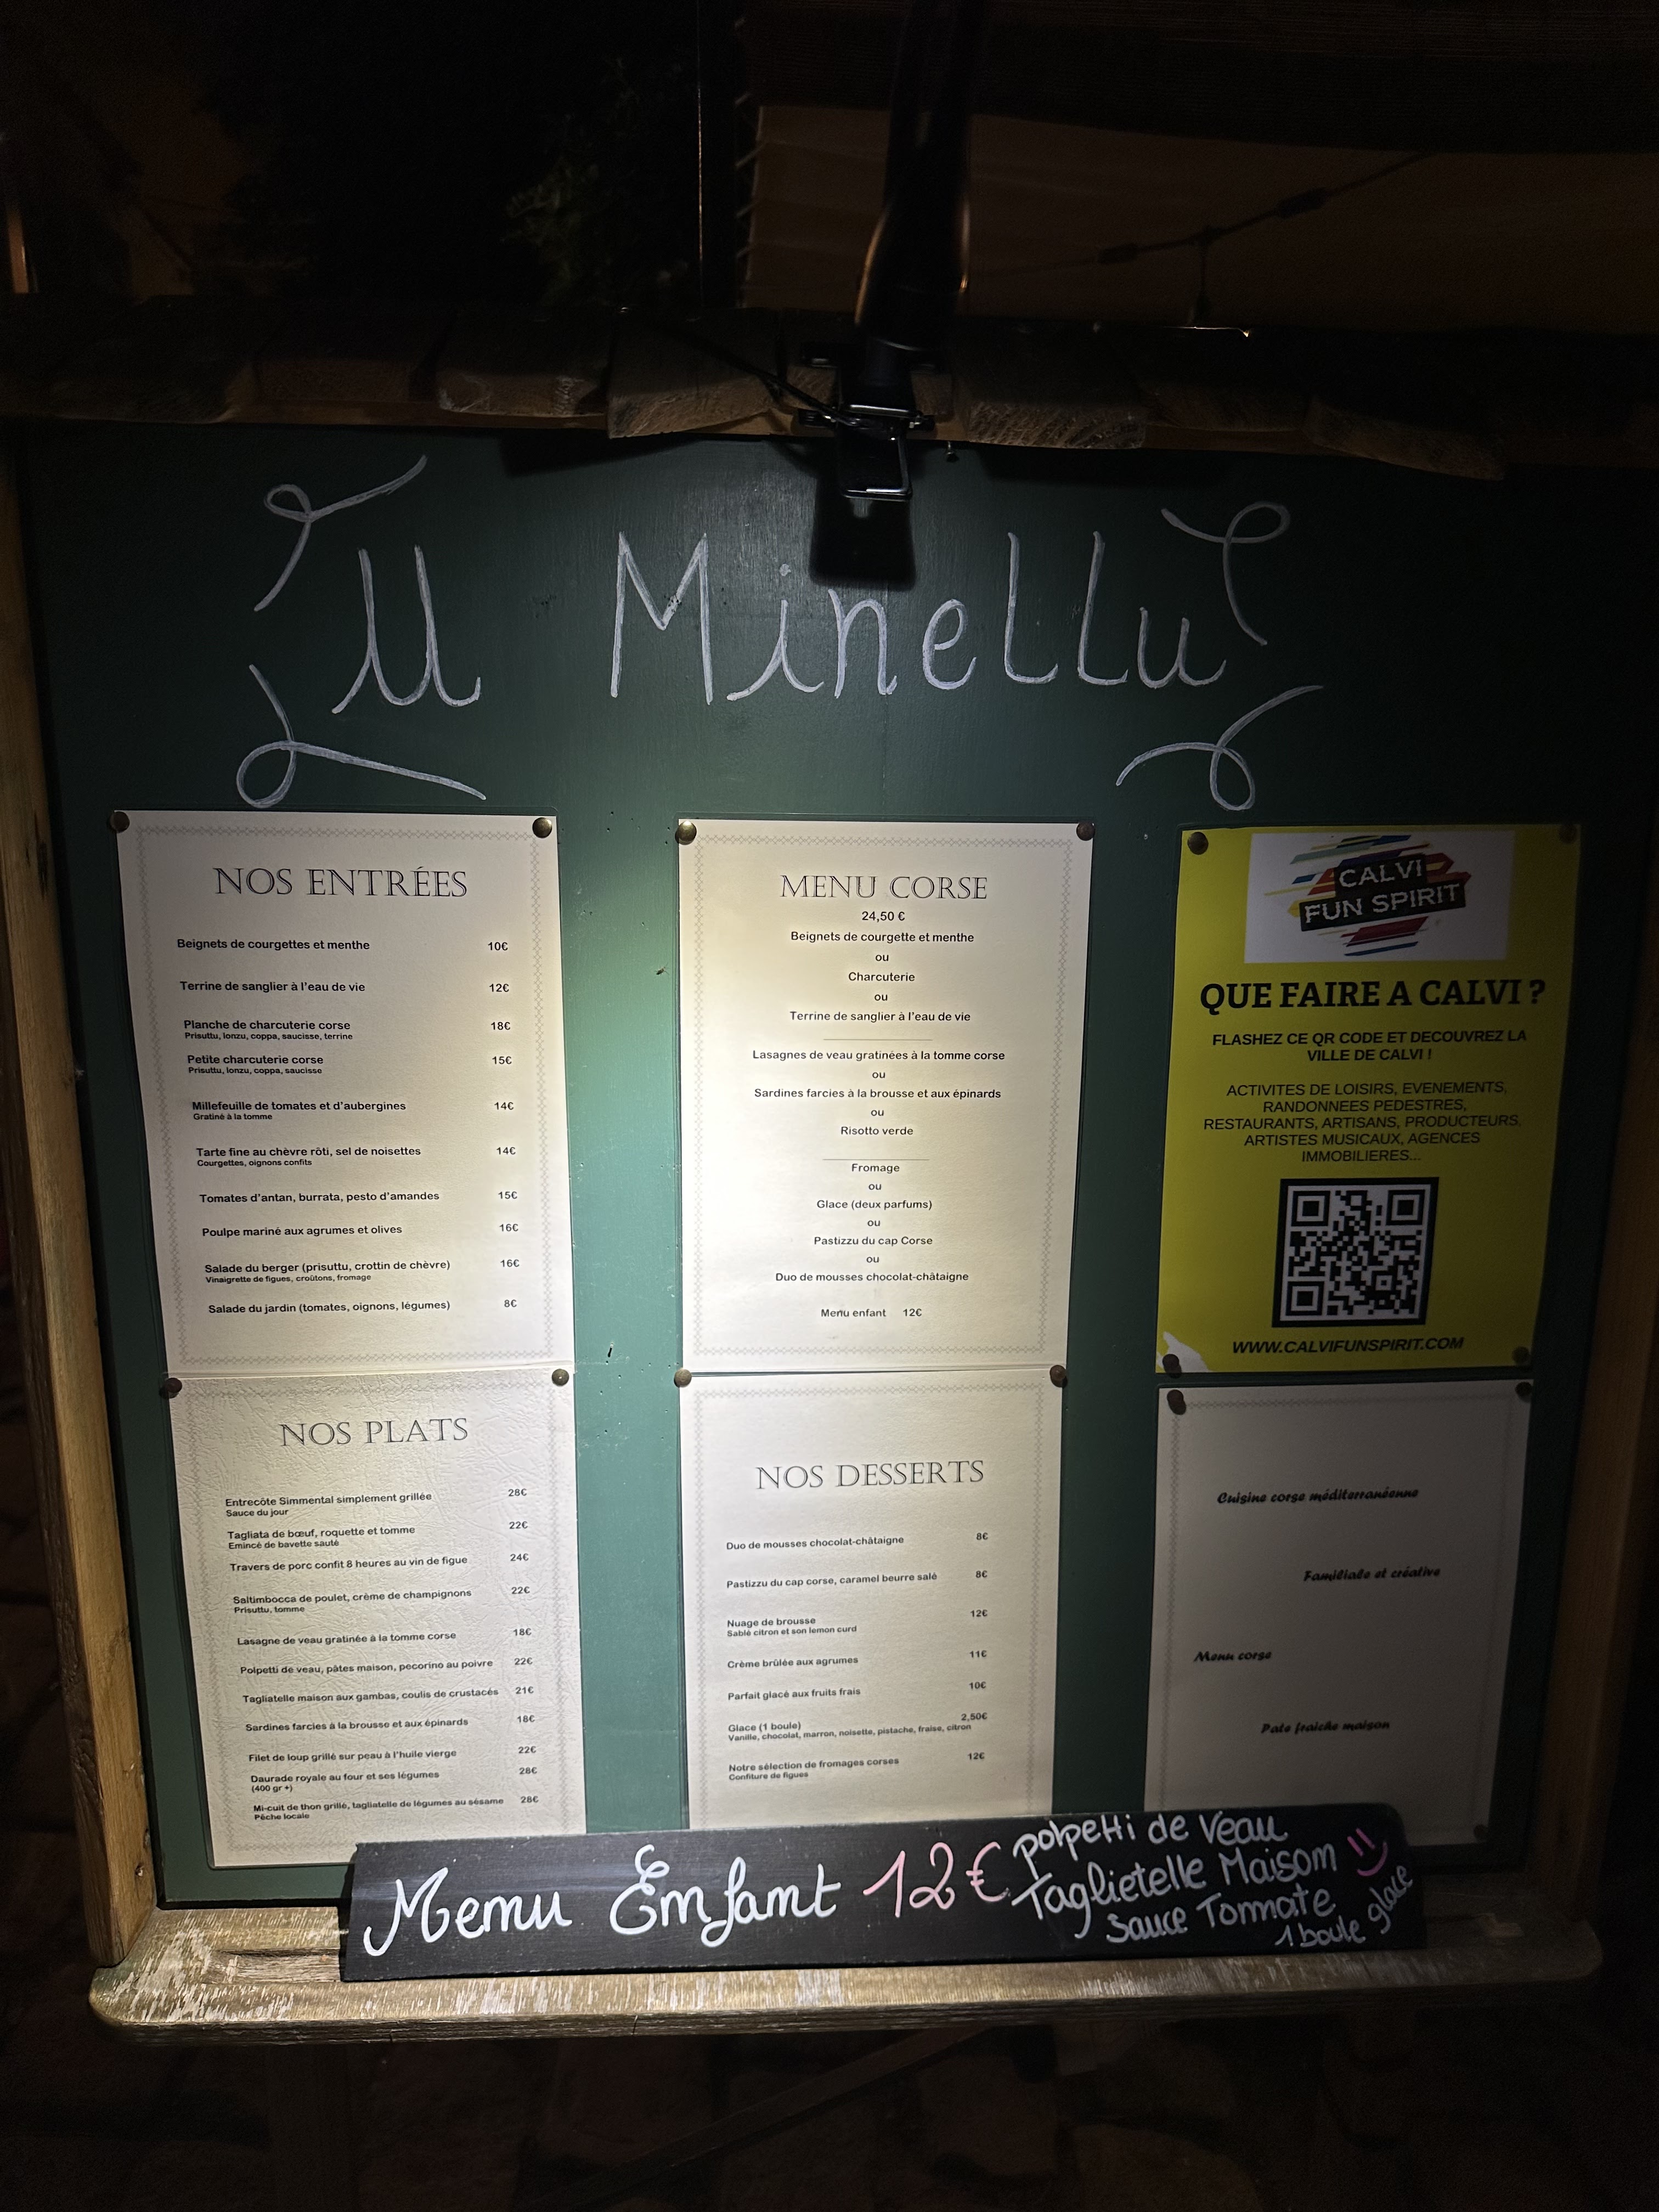 U Minellu
NOS ENTRÉES
Beignets de courgettes et menthe 10€
Terrine de sanglier à l'eau de vie 12€
Planche de charcuterie corse 18€
Prisuttu, lonzu, coppa, saucisse, terrine
Petite charcuterie corse 15€
Prisuttu, lonzu, coppa, saucisse
Millefeuille de tomates et d'aubergines 14€
Gratiné à la tomme
Tarte fine au chèvre rôti, sel de noisettes 14€
Courgettes, oignons confits
Tomates d'antan, burrata, pesto d'amandes 15€
Poulpe mariné aux agrumes et olives 16€
Salade du berger (prisuttu, crottin de chèvre) 16€
Vinaigrette de figues, croûtons, fromage
Salade du jardin (tomates, oignons, légumes) 8€
MENU CORSE
24,50 €
Beignets de courgette et menthe
ou
Charcuterie
ou
Terrine de sanglier à l'eau de vie
Lasagnes de veau gratinées à la tomme corse
ou
Sardines farcies à la brousse et aux épinards
ou
Risotto verde
Fromage
ou
Glace (deux parfums)
ou
Pastizzu du cap Corse
ou
Duo de mousses chocolat-châtaigne
Menu enfant 12€
CALVI
FUN SPIRIT
QUE FAIRE A CALVI ?
FLASHEZ CE QR CODE ET DECOUVREZ LA
VILLE DE CALVI !
ACTIVITES DE LOISIRS, EVENEMENTS,
RANDONNEES PEDESTRES,
RESTAURANTS, ARTISANS, PRODUCTEURS,
ARTISTES MUSICAUX, AGENCES
IMMOBILIERES...
WWW.CALVIFUNSPIRIT.COM
NOS PLATS
Entrecôte Simmental simplement grillée 28€
Sauce du jour
Tagliata de bœuf, roquette et tomme 22€
Emincé de bavette sauté
Travers de porc confit 8 heures au vin de figue 24€
Saltimbocca de poulet, crème de champignons 22€
Prisuttu, tomme
Lasagne de veau gratinée à la tomme corse 18€
Polpetti de veau, pâtes maison, pecorino au poivre 22€
Tagliatelle maison aux gambas, coulis de crustacés 21€
Sardines farcies à la brousse et aux épinards 18€
Filet de loup grillé sur peau à l'huile vierge 22€
Daurade royale au four et ses légumes 28€
(400 gr +)
Mi-cuit de thon grillé, tagliatelle de légumes au sésame 28€
Pêche locale
NOS DESSERTS
Duo de mousses chocolat-châtaigne 8€
Pastizzu du cap corse, caramel beurre salé 8€
Nuage de brousse 12€
Sablé citron et son lemon curd
Crème brûlée aux agrumes 11€
Parfait glacé aux fruits frais 10€
Glace (1 boule) 2,50€
Vanille, chocolat, marron, noisette, pistache, fraise, citron
Notre sélection de fromages corses 12€
Confiture de figues
Cuisine corse méditerranéenne
Familiale et créative
Menu corse
Pate fraiche maison
Menu Enfant 12€
polpetti de Veau
Taglietelle Maison
Sauce Tomate
1 boule glace